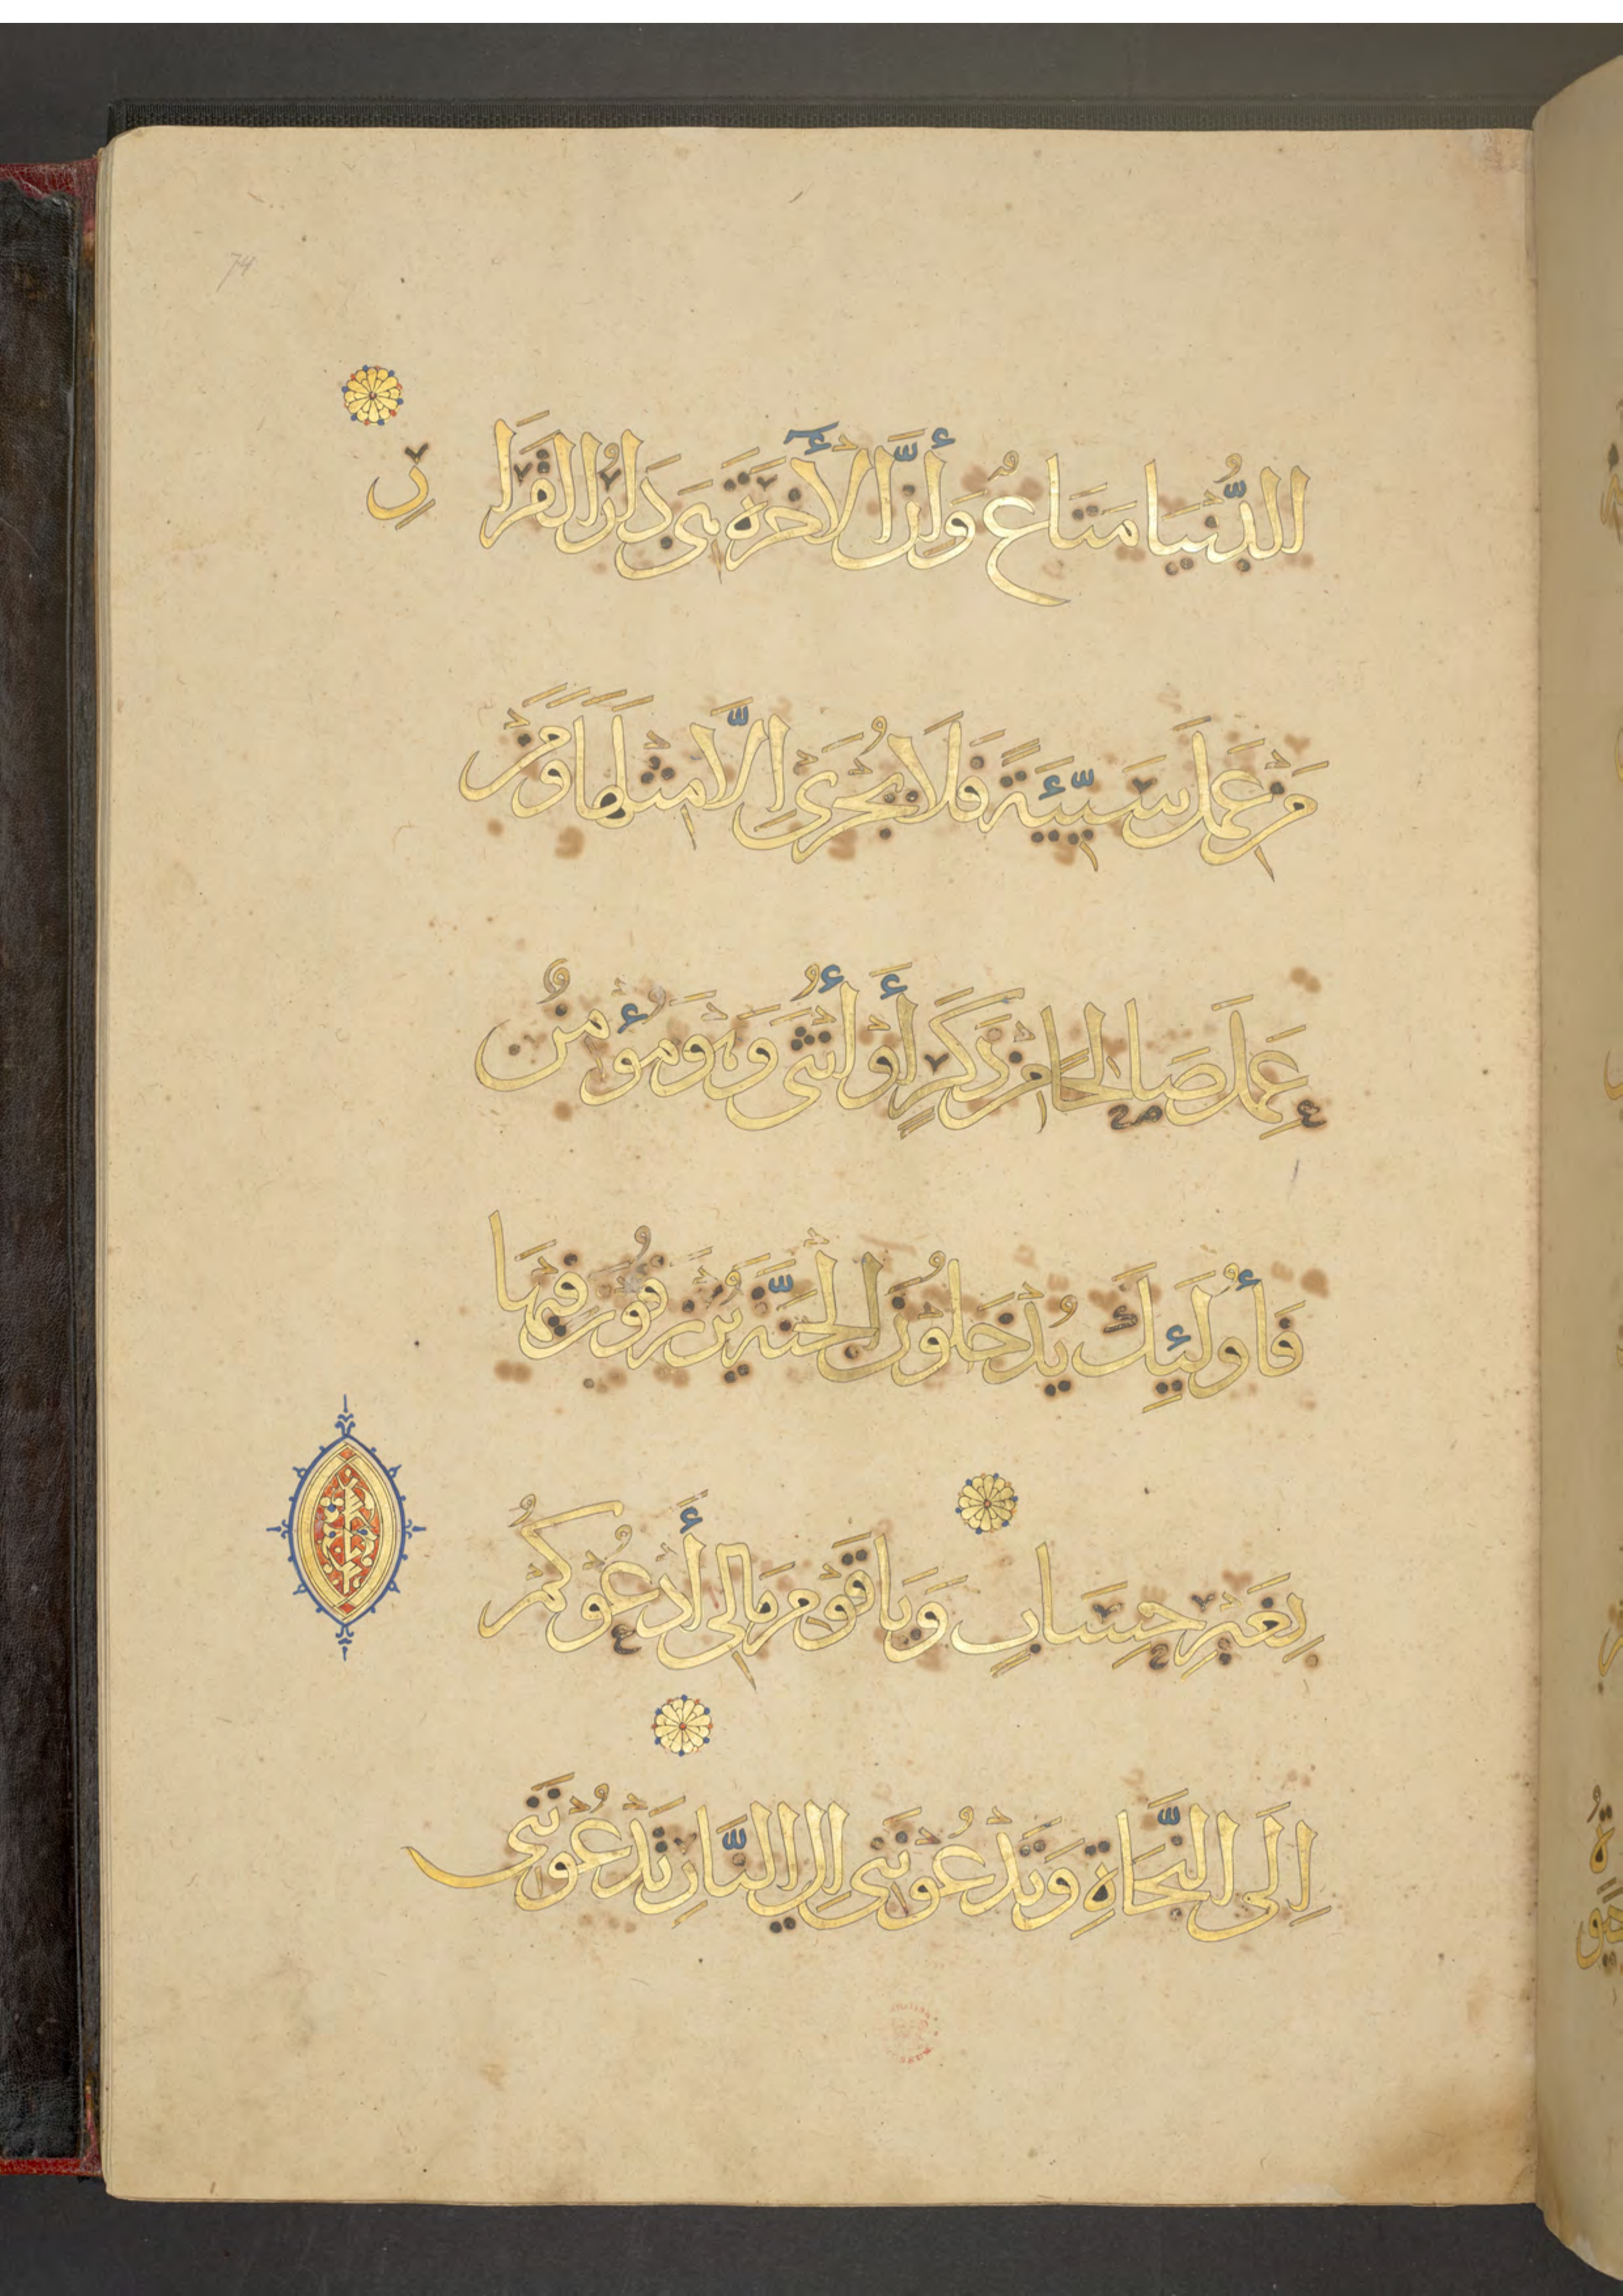 74
الدُّنْيَا مَتَاعٌ وَأَنَّ الْأٓخِرَةَ هِىَ دَارُ الْقَرَا
رِ
مَنْ عَمِلَ سَيِّئَةً فَلَا يُجْزَىٰ اِلَّا مِثْلَهَا وَمَنْ
عَمِلَ صَالِحًا مِنْ ذَكَرٍ أَوْ أُنْثَى وَهُوَ مُؤْمِنٌ
فَأُولَئِكَ يُدْخَلُونَ الْجَنَّةَ يُرْزَقُونَ فِيهَا
بِغَيْرِ حِسَابٍ وَيَاقَوْمِ مَالِى أَدْعُوكُمْ
اِلَى النَّجَاةِ وَتَدْعُونَنِى اِلَى النَّارِ تَدْعُونَنِى